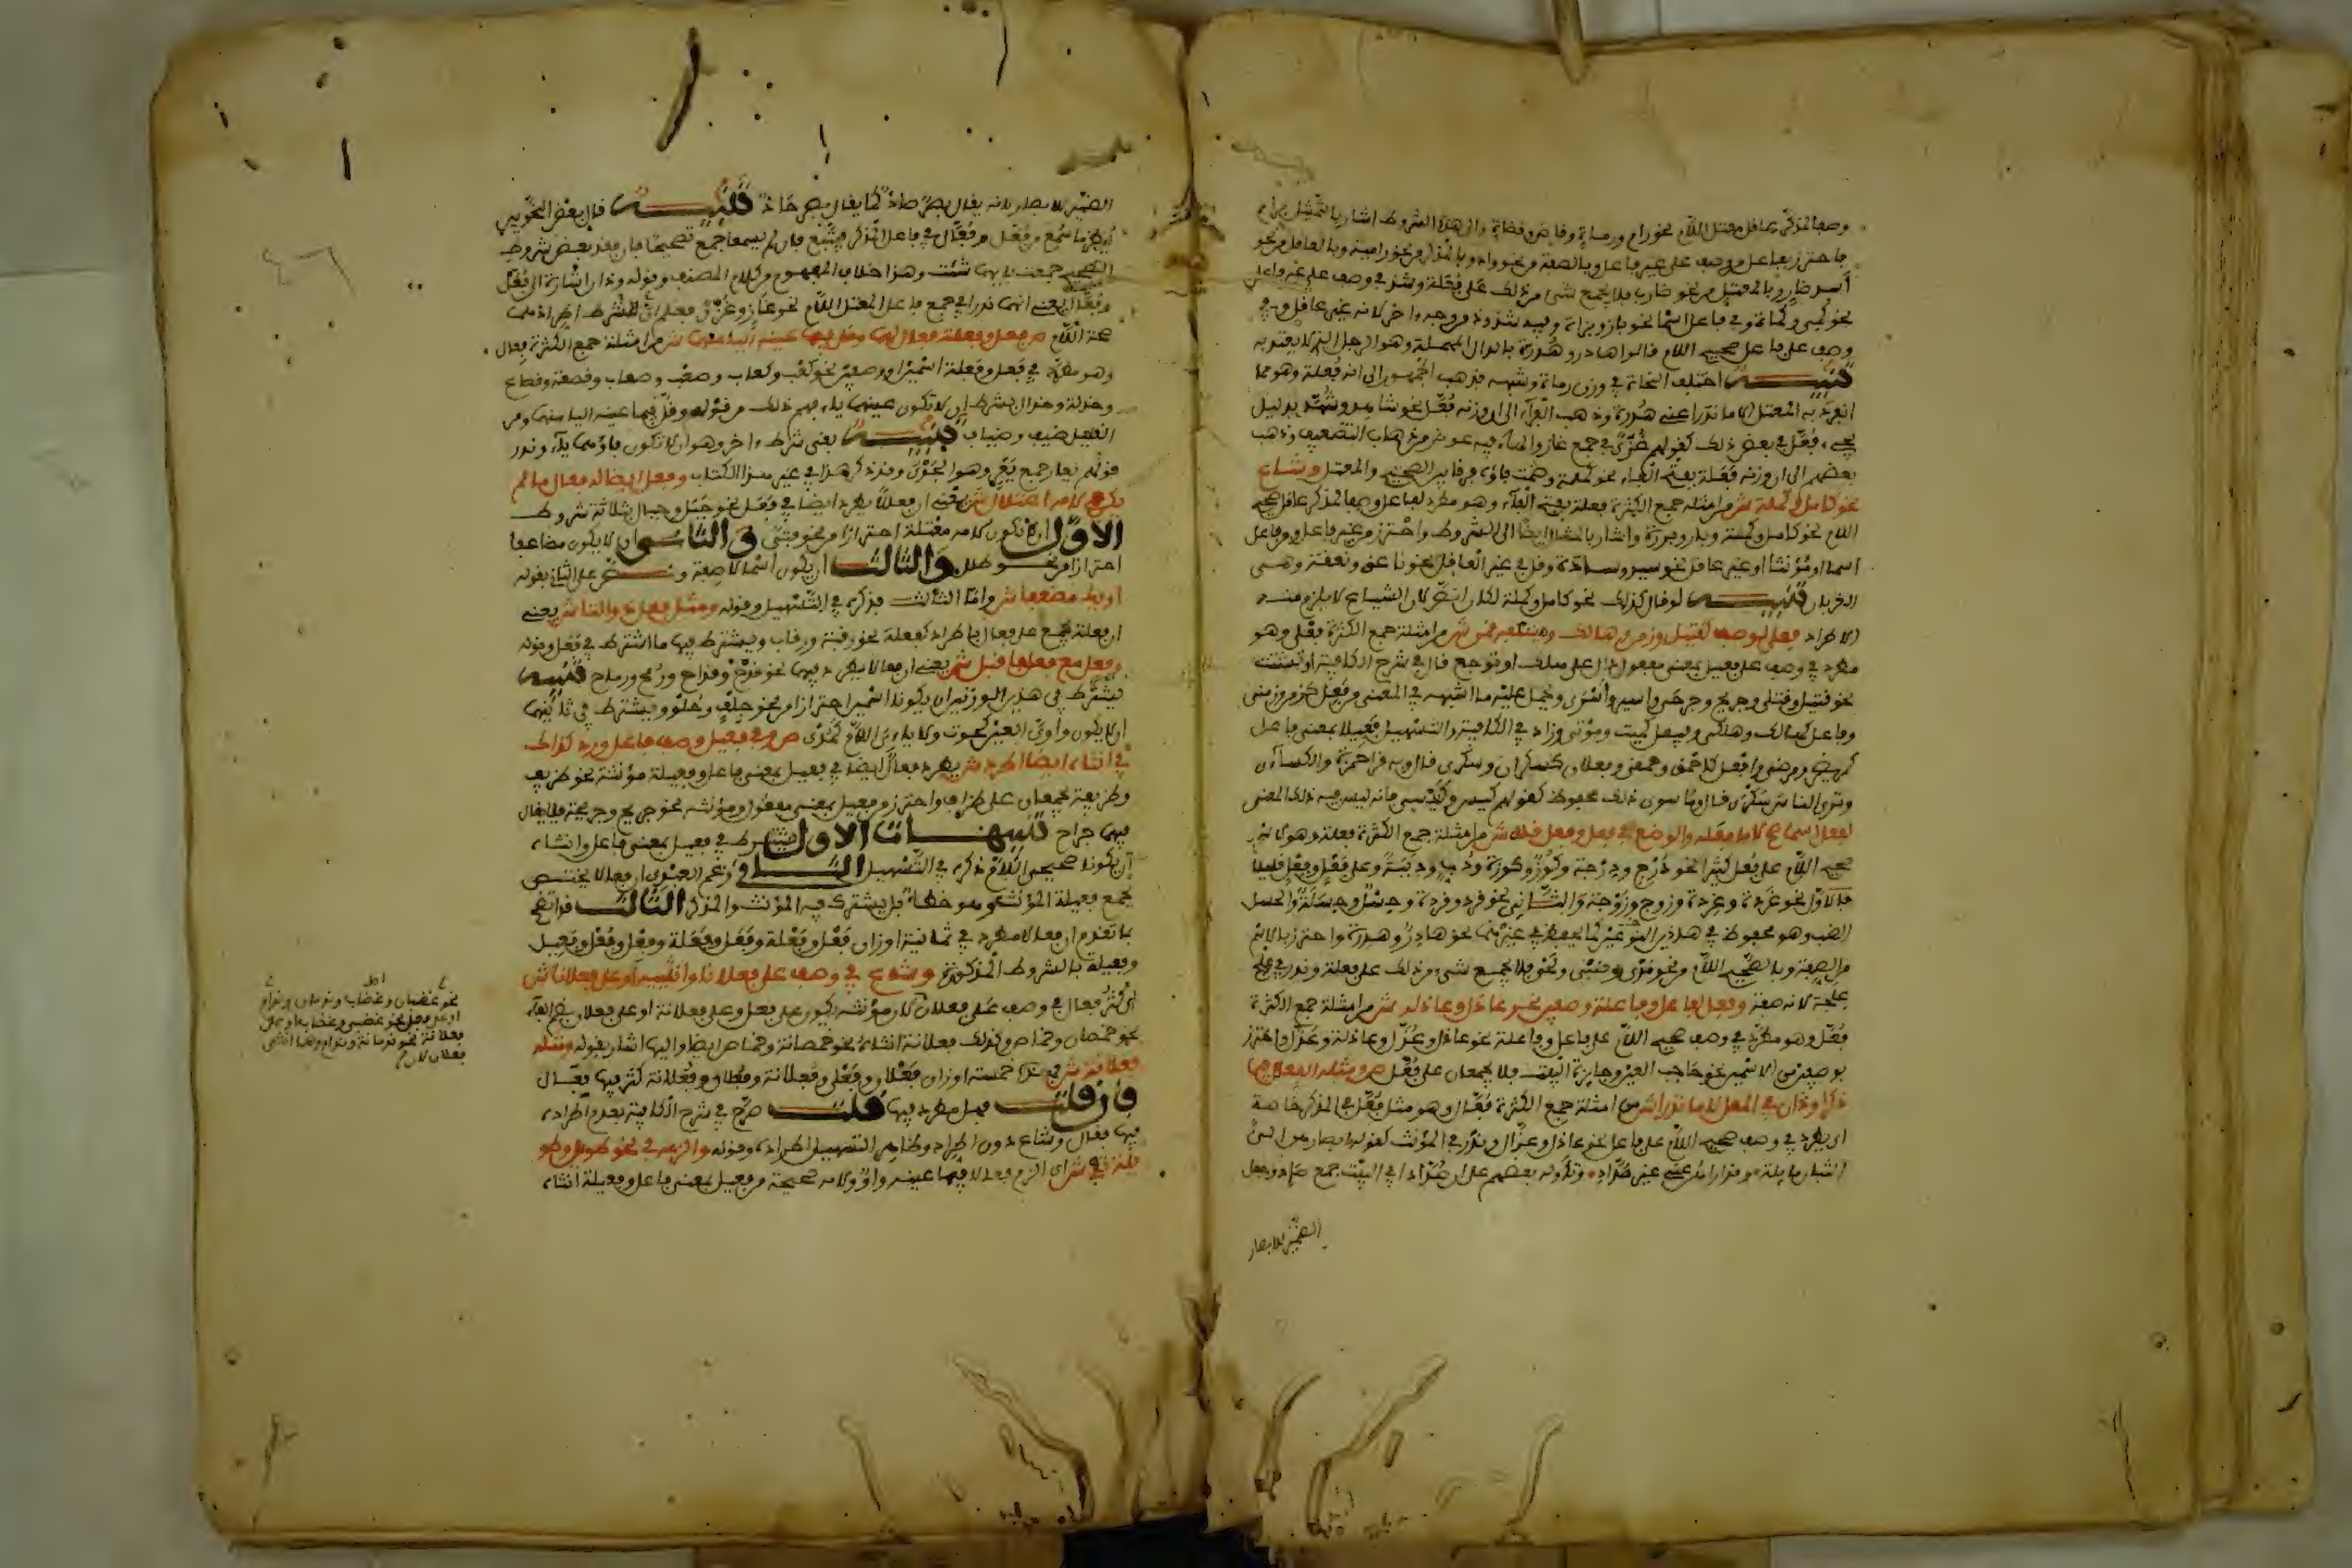 وصفا لمذكر عاقل معتل اللام نحو رام ورماة وقاض وقضاة والى هذه الشروط اشار بالتمثيل برام
فاحترز بفاعل من وصف على غير فاعل وبالصفة من نحو واد وبالمذكر من نحو رامية وبالعاقل من نحو
أسد ضار وبالمعتل من نحو ضارب فلا يجمع شيء من ذلك على فعلة وشذ في وصف على غير فاعل
نحو كمي وكماة وفي فاعل اسما نحو باز وبزاة وفيه شذوذ من وجه ءاخر لانه غير عاقل وفي
وصف على فاعل صحيح اللام قالوا هادر وهدرة بالدال المهملة وهو الرجل الذي لا يعتد به
تنبيه اختلف النحاة في وزن رماة وشبهه فذهب الجمهور الى انه فعلة وهو مما
انفرد به المعتل الا ما ندر اعني هدرة وذهب الفراء الى ان وزنه فعل نحو شاهد وشهد بدليل
مجيء فعل في بعض ذلك كقولهم غزى في جمع غاز والهاء فيه عوض من ذهاب التضعيف وذهب
بعضهم الى ان وزنه فعلة بفتح الفاء نحو كملة وضمت فاؤه فرقا بين الصحيح والمعتل وشاع
نحو كامل وكملة ش من امثلة جمع الكثرة فعلة بفتح الفاء وهو مطرد لفاعل وصفا لمذكر عاقل صحيح
اللام نحو كامل وكملة وبار وبررة واشار بالمثال ايضا الى الشروط واحترز من غير فاعل ومن فاعل
اسما او مؤنثا او غير عاقل نحو سيد وسادة وقل في غير العاقل نحو ناعق ونعقة وهي
الغربان تنبيه لو قال كذاك نحو كامل وكملة لكان انص لان الشياع لا يلزم منه
الاطراد فعلى لوصف كقتيل وزمن وهالك وميت به قمن ش من امثلة جمع الكثرة فعلى وهو
مطرد في وصف على فعيل بمعنى مفعول دال على هلك او توجع قال في شرح الكافية او تشتت
نحو قتيل وقتلى وجريح وجرحى واسير وأسرى وحمل عليه ما اشبهه في المعنى من فعل كزمن وزمنى
وفاعل كهالك وهلكى وفيعل كميت وموتى وزاد في الكافية والتسهيل فعيلا بمعنى فاعل
كمريض ومرضى وافعل كاحمق وحمقى وفعلان كسكران وسكرى قال وبه قرا حمزة والكسائي
وترى الناس سكرى قال وما سوى ذلك محفوظ كقولهم كيس وكيسى فانه ليس فيه ذلك المعنى
لفعل اسما صح لاما فعله والوضع في فعل وفعل قلله ش من امثلة جمع الكثرة فعلة وهو لاسم
صحيح اللام على فعل كثيرا نحو درج ودرجة وكوز وكوزة ودب ودببة وعلى فعل وفعل قليلا
فالاول نحو غرد وغردة وزوج وزوجة والثاني نحو قرد وقردة وحسل وحسلة والحسل
الضب وهو محفوظ في هذين النوعين كما يحفظ في غيرهما نحو هادر وهدرة واحترز بالاسم
من الصفة وبالصحيح اللام من نحو مدي وظبي ونحي فلا يجمع شيء من ذلك على فعلة وندر في علج
علجة لانه صفة وفعل لفاعل وفاعلة وصفين نحو عاذل وعاذله ش من امثلة جمع الكثرة
فعل وهو مطرد في وصف صحيح اللام على فاعل وفاعلة نحو عاذل وعذل وعاذلة وعذل واحترز
بوصفين من الاسمين نحو حاجب العين وجايزة البيت فلا يجمعان على فعل ص ومثله الفعال فيما
ذكرا وذان في المعل لاما ندرا ش من امثلة جمع الكثرة فعال وهو مثل فعل في المذكر خاصة
اي يطرد في وصف صحيح اللام على فاعل نحو عاذل وعذال وندر في المؤنث كقوله ابصارهن الى
الشبان مايلة وقد اراهن عني غير صداد وتاوله بعضهم على ان صداد في البيت جمع صاد وجعل
الضمير للابصار
الضمير للابصار لانه يقال بصر صاد كما يقال بصر حاد تنبيه قال بعض النحويين
وفعال يعني انهما ندرا في جمع فاعل المعتل اللام نحو غاز وغزى
ص فعل وفعلة فعال لهما وقل فيما عينه اليا منهما ش من امثلة جمع الكثرة فعال
وهو مطرد في فعل وفعلة اسمين او وصفين نحو كعب وكعاب وصعب وصعاب وقصعة وقصاع
وخدلة وخدال بشرط ان لا تكون عينهما ياء فهم ذلك من قوله وقل فيما عينه اليا منهما ومن
القليل ضيف وضياف تنبيه بقي شرط ءاخر وهو ان لا تكون فاؤهما ياء وندر
قولهم يعار جمع يعر وهو الجدي وقد ذكر هذا في غير هذا الكتاب وفعل ايضا له فعال ما لم
يكن في لامه اعتلال ش يعني ان فعالا يطرد ايضا في فعل نحو جبل وجبال بثلاثة شروط
الاول ان لا تكون لامه معتلة احترازا من نحو فتى والثاني ان لا يكون مضاعفا
احترازا من نحو طلل والثالث ان يكون اسما لا صفة ونص على الثاني بقوله
او يك مضعفا ش واما الثالث فذكره في التسهيل وقوله ومثل فعل ذو التا ش يعني
ان فعلة تجمع على فعال باطراد كفعلة نحو رقبة ورقاب ويشترط فيها ما اشترط في فعل وقوله
وفعل مع فعل فاقبل ش يعني ان فعالا يطرد فيهما نحو قدح وقداح ورمح ورماح تنبيه
يشترط في هذين الوزنين ان يكونا اسمين احترازا من نحو جلف وحلو ويشترط في ثانيهما
ان لا يكون واوي العين كحوت ولا يايي اللام كمدي ص وفي فعيل وصف فاعل ورد كذاك
في انثاه ايضا اطرد ش يطرد فعال ايضا في فعيل بمعنى فاعل وفعيلة مؤنثه نحو ظريف
وظريفة تجمعان على ظراف واحترز من فعيل بمعنى مفعول ومؤنثه نحو جريح وجريحة فلا يقال
فيهما جراح تنبيهات الاول يشترط في فعيل بمعنى فاعل وانثاه
أن يكونا صحيحي اللام ذكره في التسهيل الثاني زعم العبدي ان فعالا يختص
بجمع فعيلة المؤنث وهو خطأ بل يشترك فيه المؤنث والمذكر الثالث قد اتضح
بما تقدم ان فعالا مطرد في ثمانية اوزان فعل وفعلة وفعل وفعلة وفعل وفعل وفعيل
وفعيلة بالشروط المذكورة وشاع في وصف على فعلانا او انثييه او على فعلانا ش
أي كثر فعال في وصف على فعلان
نحو خمصان وخماص وكذلك فعلانة انثاه نحو خمصانة وخماص ايضا واليها اشار بقوله ومثله
فعلانة ش فهذه خمسة اوزان فعلان وفعلى وفعلانة وفعلان وفعلانة كثر فيها فعال
فإن قلت فهل يطرد فيها قلت صرح في شرح الكافية بعدم اطراده
فيها فقال وشاع دون اطراد وظاهر التسهيل اطراده وقوله والزمه في نحو طويل وطو
يلة تفي ش اي الزم فعالا فيما عينه واو ولامه صحيحة من فعيل بمعنى فاعل وفعيلة انثاه
نحو غضبان وغضاب وندمان وندام
او على فعلى نحو غضبى وغضاب او على
فعلانة نحو ندمانة وندام